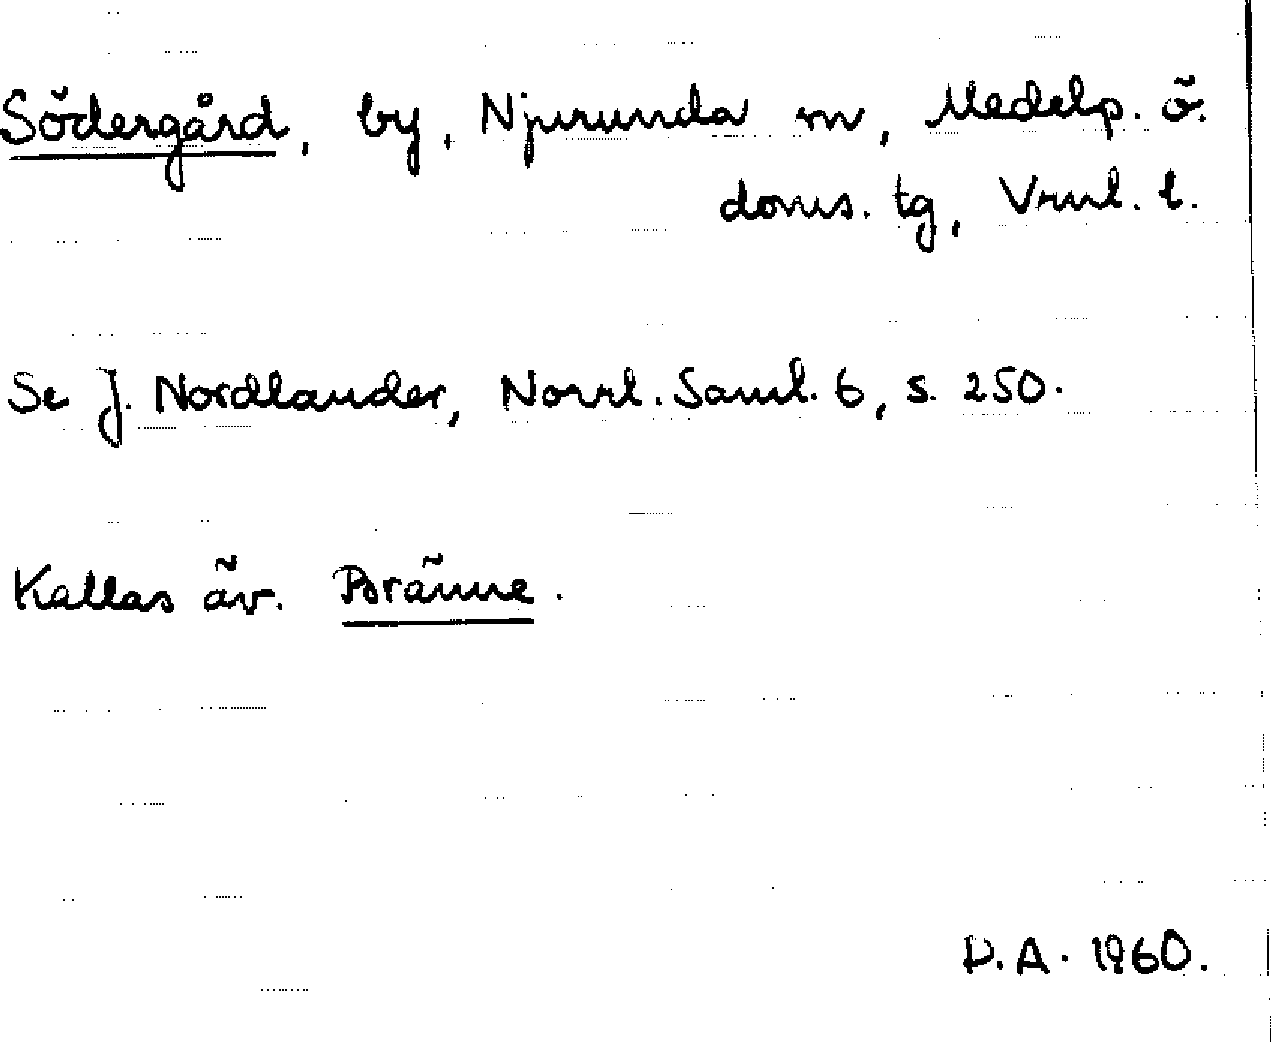 Södergård, by, Njurunda sn, Medelp. ö.
doms. tg, Vrnl. l.
Se J. Nordlander, Norrl. Saml. 6, s. 250.
Kallas äv. Bränne.
D.A. 1960.